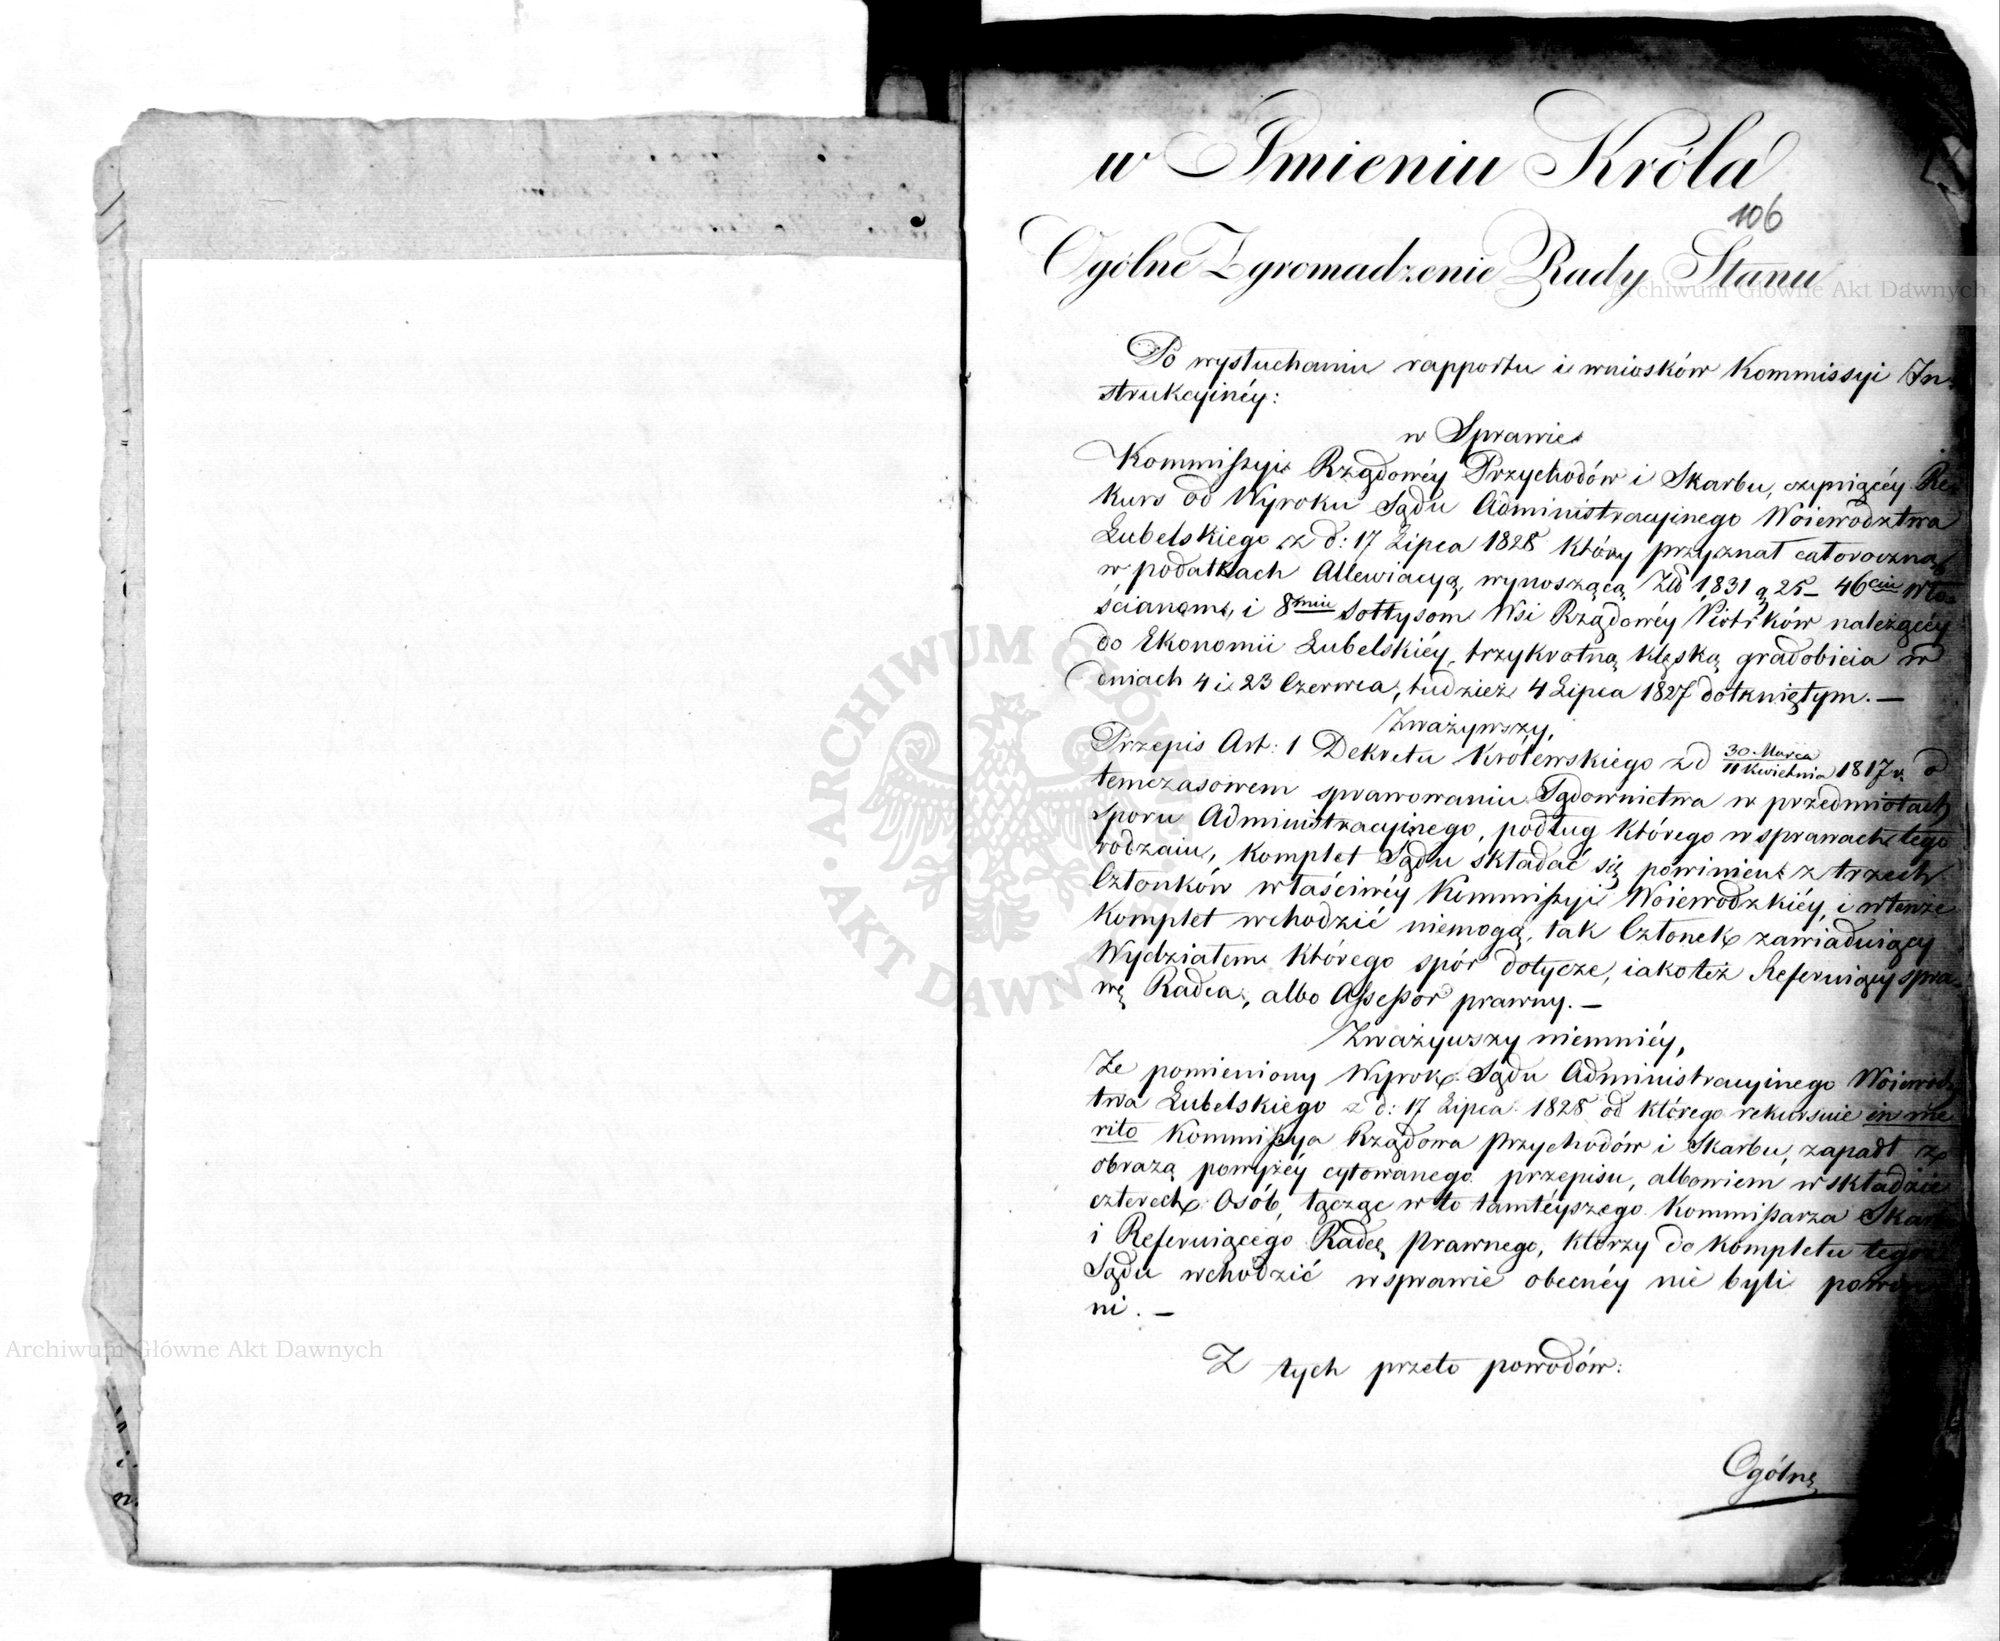 w Imieniu Króla
106
Ogólne Zgromadzenie Rady Stanu
Po wysłuchaniu rapportu i wniosków Kommissyi In-
strukcyinéy:
w Sprawie
Kommissyi Rządowéy Przychodów i Skarbu, czyniącéy Re-
kurs od Wyroku Sądu Administracyinego Woiewództwa
Lubelskiego z d: 17 Lipca 1828 który przyznał całoroczną
w podatkach Allewiacyą, wynoszącą Złł 1831 g 25 – 46ciu wło-
ścianom, i 8miu Sołtysom Wsi Rządowéy Piotrków należącéy
do Ekonomii Lubelskiéy, trzykrotną klęską gradobicia w
dniach 4 i 23 Czerwca, tudzież 4 Lipca 1827 dotkniętym. –
Zważywszy,
Przepis Art: 1 Dekretu Królewskiego z d 30 Marca / 11 Kwietnia 1817 r. o
temczasowem sprawowaniu Sądownictwa w przedmiotach
Sporu Administracyinego, podług którego w sprawach tego
rodzaiu, komplet Sądu składać się powinien z trzech
Członków właściwéy Kommissyi Woiewódzkiéy, i w tenże
komplet wchodzić niemogą, tak Członek zawiaduiący
Wydziałem którego spór dotycze, iakoteż Referuiący spra-
wę Radca, albo Assessor prawny. –
Zważywszy niemniéy,
Że pomieniony Wyrok Sądu Administracyinego Woiewódz-
twa Lubelskiego z d: 17 Lipca 1828 od którego rekursuie in me-
rito Kommissya Rządowa Przychodów i Skarbu, zapadł z
obrazą powyżéy cytowanego przepisu, albowiem w składzie
czterech Osób, łącząc w to tamtéyszego Kommissarza Skarbu
i Referuiącego Radcę Prawnego, którzy do kompletu tegoż
Sądu wchodzić w sprawie obecnéy nie byli powin-
ni. –
Z tych przeto powodów:
Ogólne
Archiwum Główne Akt Dawnych
Archiwum Główne Akt Dawnych
ARCHIWUM GŁÓWNE AKT DAWNYCH